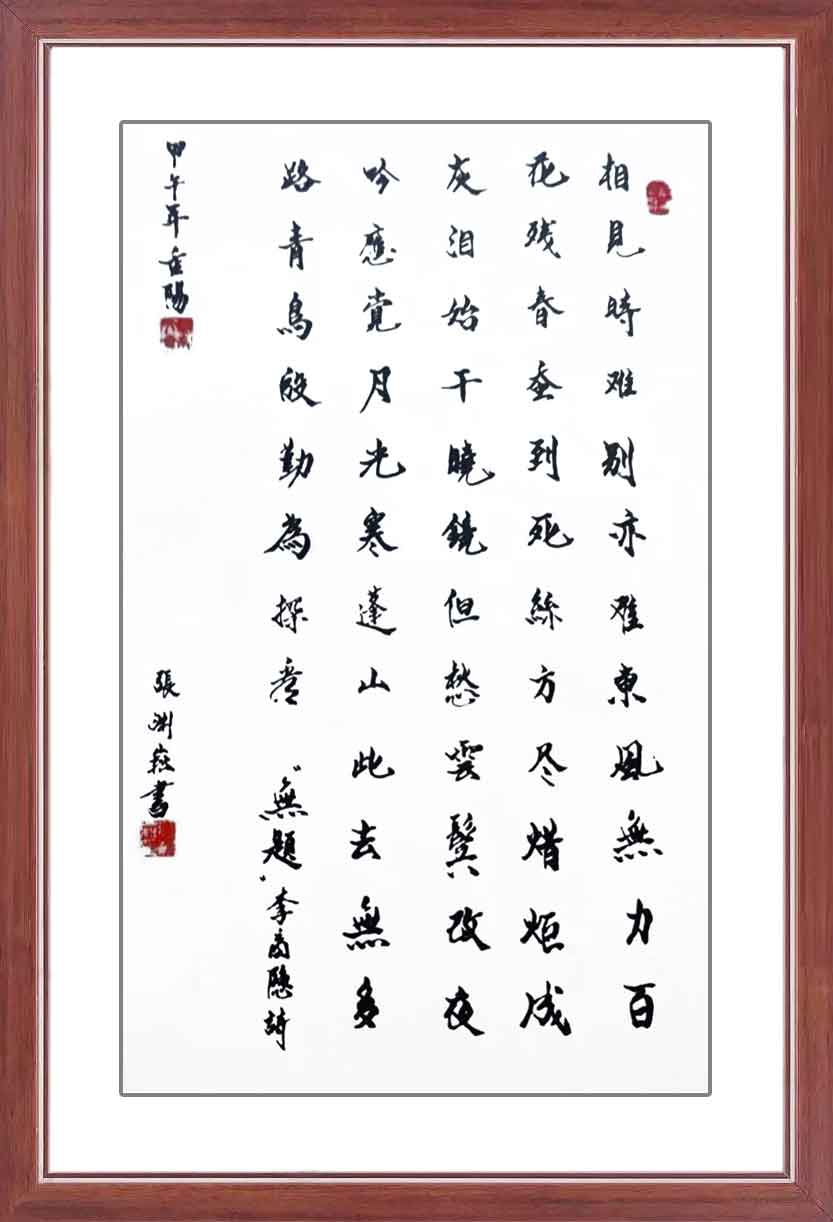 相見時难别亦难東風無力百
花残春蚕到死絲方尽蜡炬成
灰泪始干曉鏡但愁雲鬓改夜
吟應觉月光寒蓬山此去無多
路青鳥殷勤為探看“無題”李商隱詩
甲午年重陽
張渊書